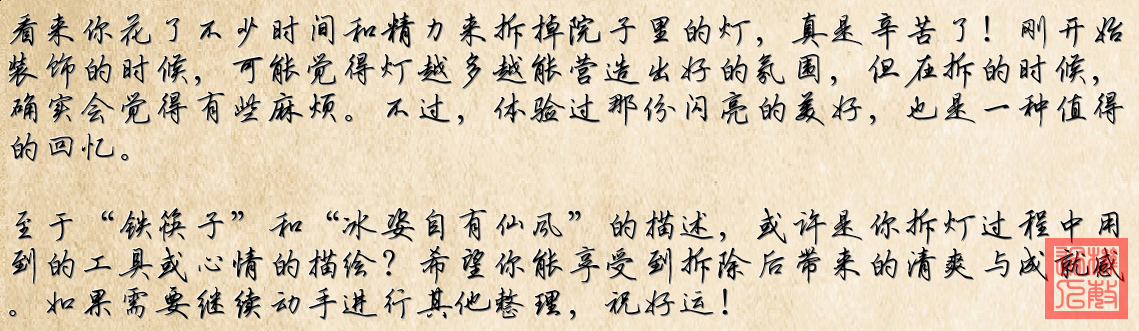 看来你花了不少时间和精力来拆掉院子里的灯，真是辛苦了！刚开始
装饰的时候，可能觉得灯越多越能营造出好的氛围，但在拆的时候，
确实会觉得有些麻烦。不过，体验过那份闪亮的美好，也是一种值得
的回忆。
至于“铁筷子”和“冰姿自有仙风”的描述，或许是你拆灯过程中用
到的工具或心情的描绘？希望你能享受到拆除后带来的清爽与成就感
。如果需要继续动手进行其他整理，祝好运！